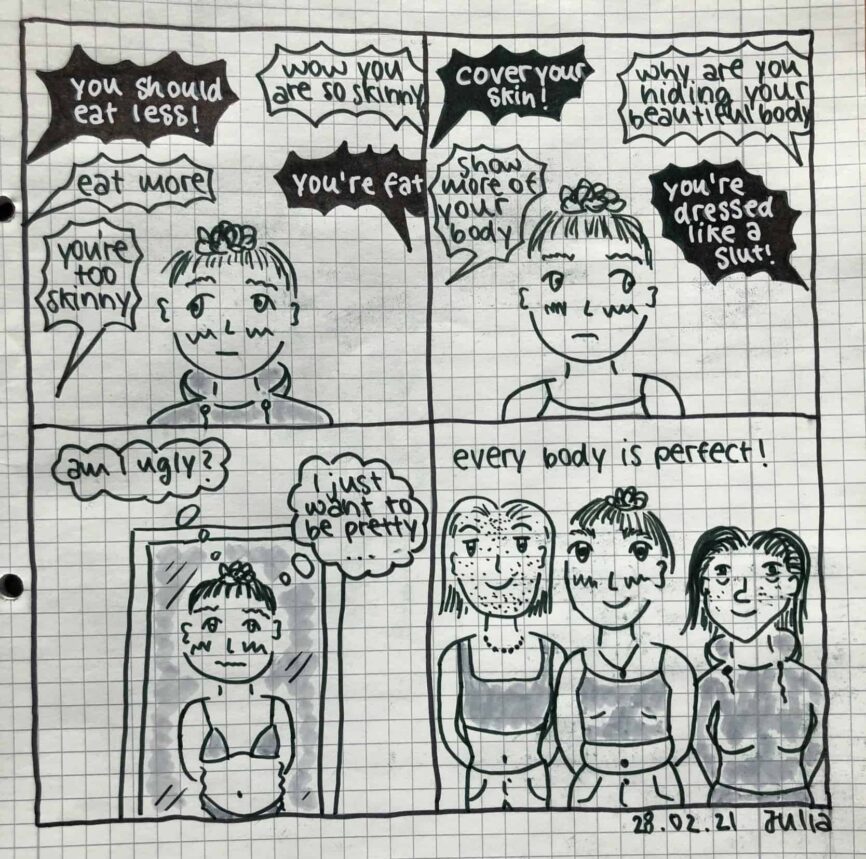 you should
eat less!
wow you
are so skinny
eat more
you're fat
you're
too
skinny
cover your
skin!
why are you
hiding your
beautiful body
show
more of
your
body
you're
dressed
like a
slut!
am I ugly?
I just
want to
be pretty
...
every body is perfect!
28.02.21 Julia